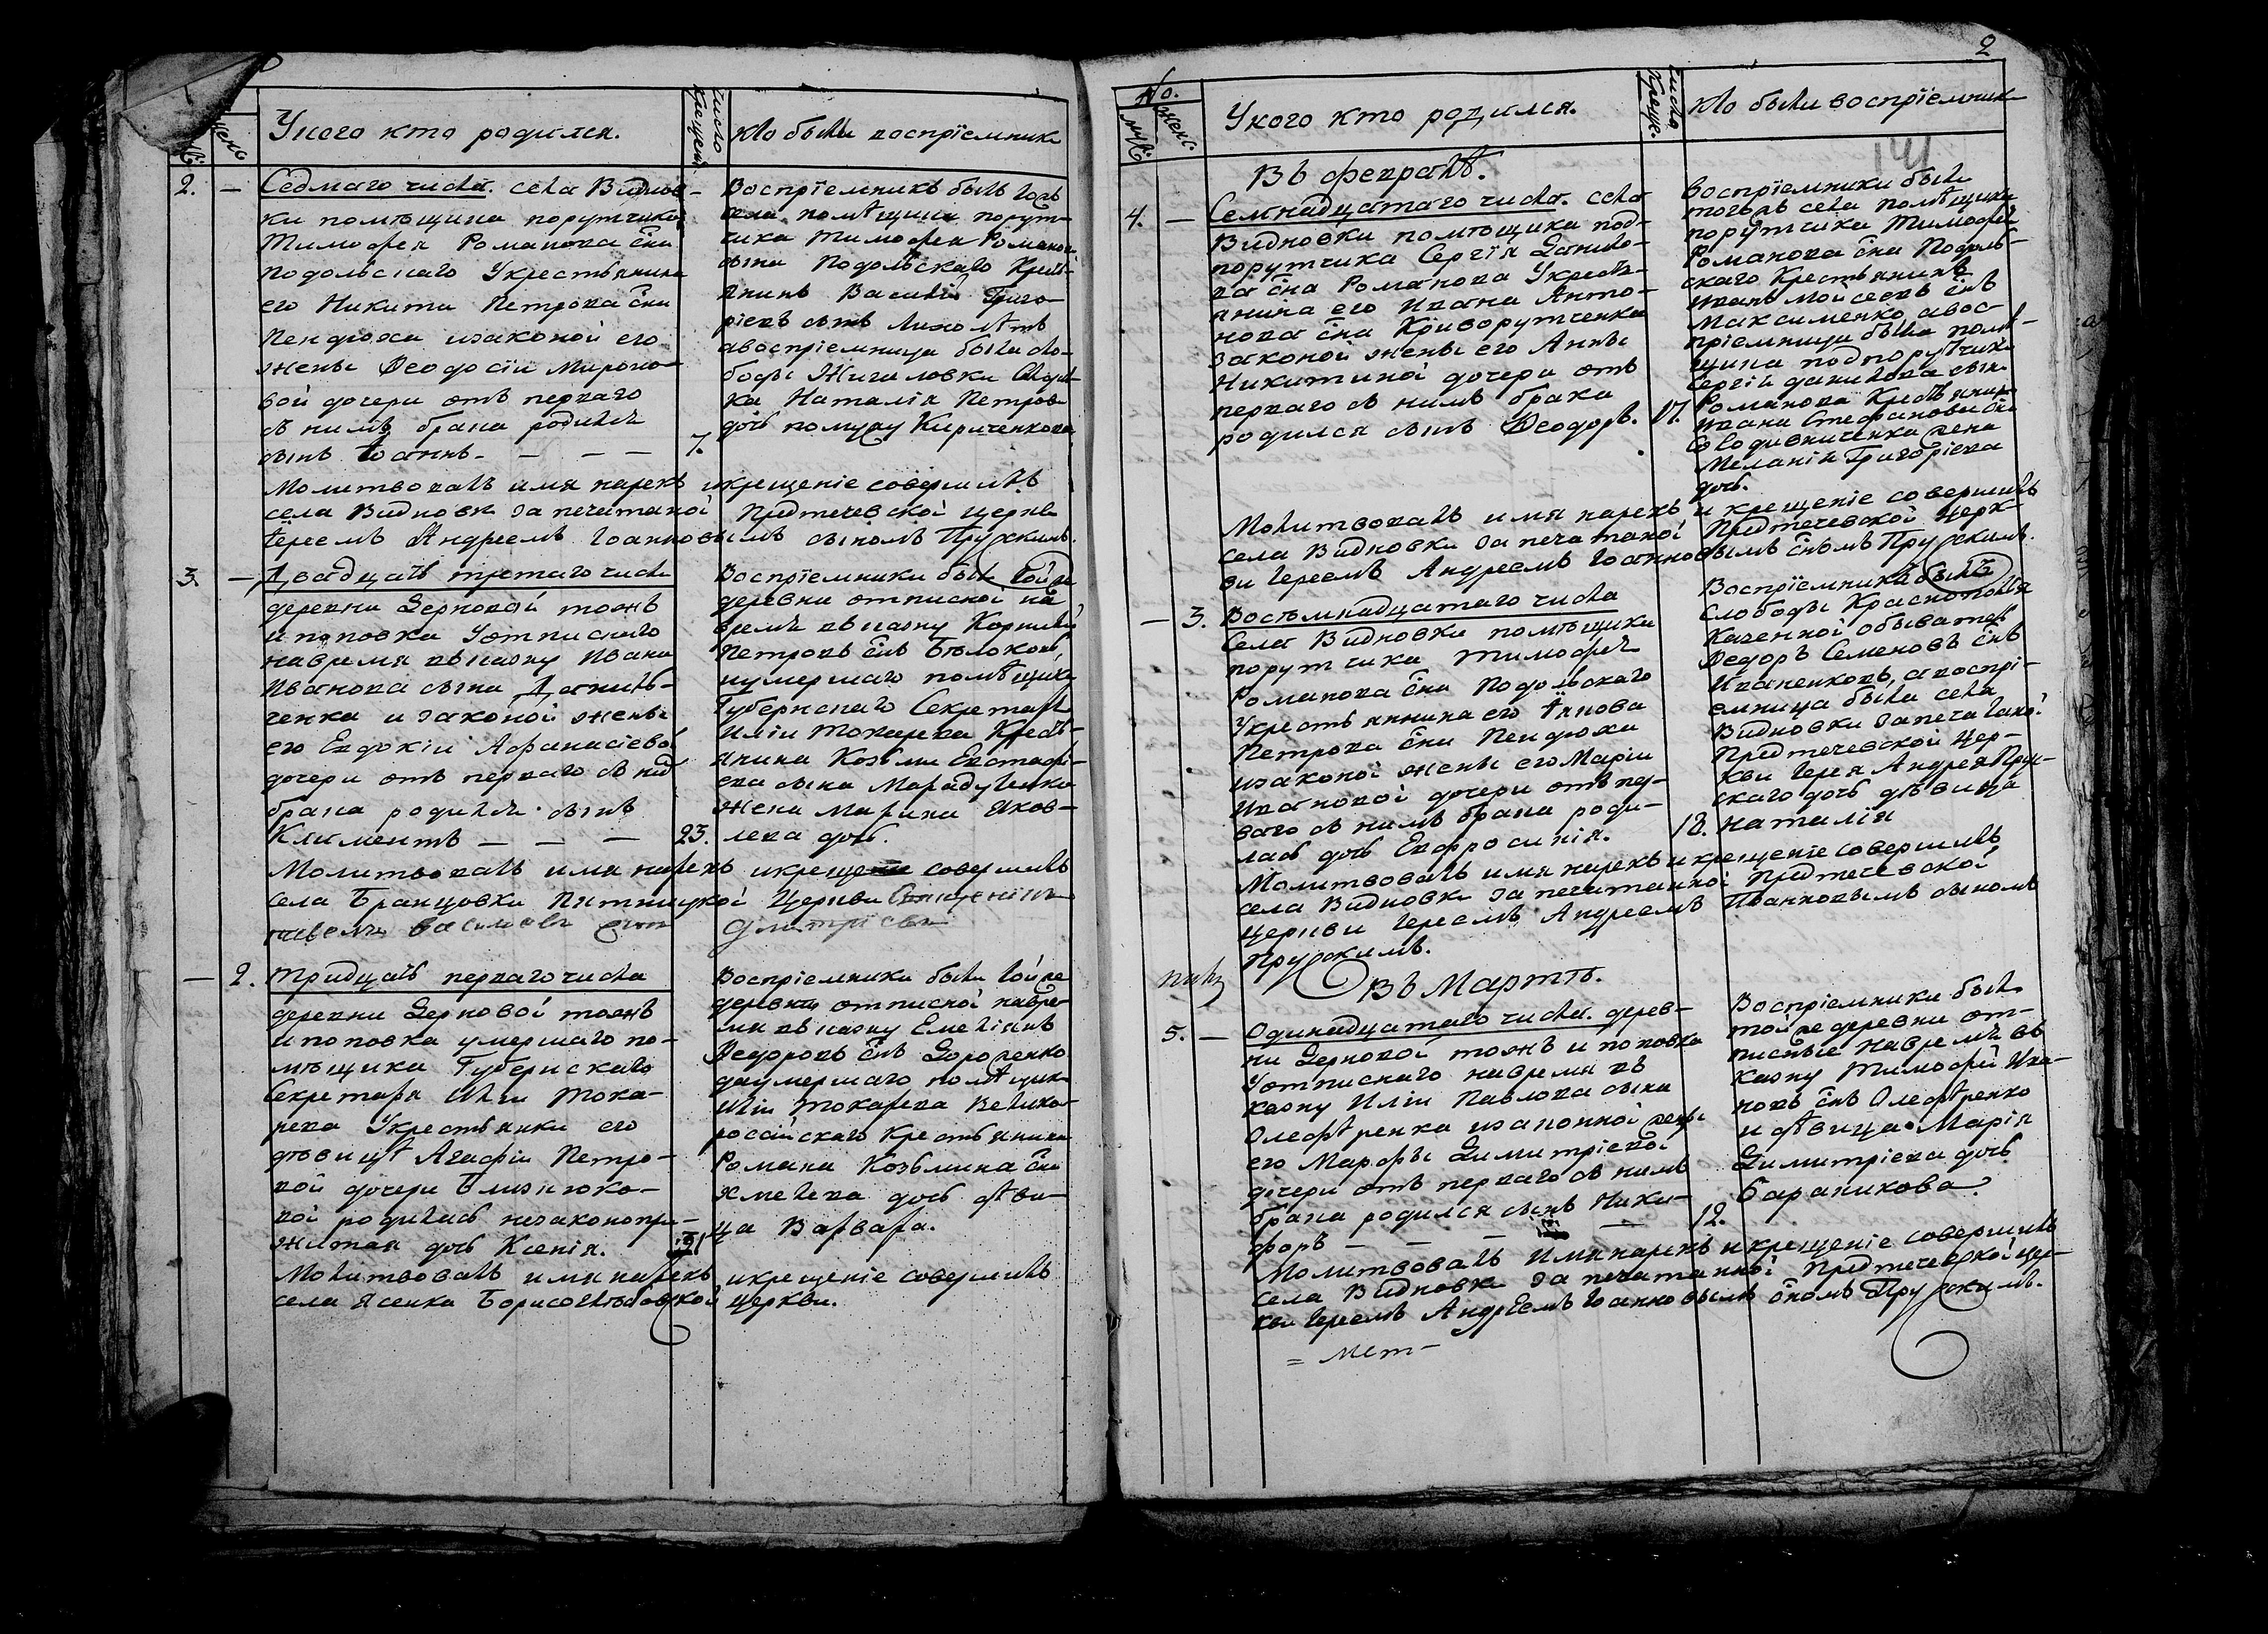 У кого кто родился.
число крещен.
кто были воспріемники
муж.
жен.
2. —
Седмаго числа. села Виднов-
ки помѣщика порутчика
Тимофея Романова сна
Подольскаго Укрестьянина
его Никиты Петрова сна
Пендюха изаконой его
жены Ѳеодосіи Мироно-
вой дочери отъ перваго
съ нимъ брака родился
сынъ Іоаннъ — — — 7.
Воспріемникъ былъ того жъ
села помѣщика порут-
чика Тимофея Романова
сына Подольскаго Крест-
янинъ Василій Григо-
ріевъ сынъ
авоспріемница была сло-
боды Жигаловки
ка Наталія Петрова
дочь помужу Кириченкова
Молитвовалъ имя нарекъ икрещеніе совершилъ
села Видновки запечатаной Предтечевской церкви
Іереемъ Андреемъ Іоанновымъ сыномъ Пружскимъ.
3. —
Двадцать третаго числа
деревни Зерновой тожъ
и поповка Уотписнаго
навремя вказну Ивана
Иванова сына Данил-
ченка и законой жены
его Евдокіи Афанасіевой
дочери отъ перваго съ нимъ
брака родился сынъ
Климентъ — — — 23.
Воспріемники были той же
деревни отписной на
время вказну Корнилій
Петровъ снъ Бѣлоконь,
иумершаго помѣщика
Губернскаго Секретаря
Иліи Токарева Кресть-
янина Козьмы Евстафі-
ева сына
жена Марина Яков-
лева дочь.
Молитвовалъ имя нарекъ икрещеніе совершилъ
села Бранцовки Пятницкой Церкви Священникъ
Дмитріевъ
— 2.
Тридцать перваго числа
деревни Зерновой тожъ
и поповка умершаго по-
мѣщика Губернскаго
Секретаря Иліи Тока-
рева Укрестьянки его
дѣвицѣ Агафіи Петро-
вой дочери Близнюко-
вой родилась незаконопри-
житая дочь Ксенія. 31
Воспріемники были той же
деревни отписной навре-
мя вказну Емеліянъ
Ѳедоровъ снъ Дороренко
даумершаго помѣщика
Иліи Токарева Велико-
російскаго Крестьянина
Романа Козьмина сна
Хмелева дочь дѣви-
ца Варвара.
Молитвовалъ имя нарекъ икрещеніе совершилъ
села Ясенка Борисоглѣбовской церкви.
2
No.
муж.
жен.
У кого кто родился.
число крещ.
кто были воспріемники
141
Въ февралѣ.
4. —
Семнадцатаго числа. села
Видновки помѣщика под-
порутчика Сергія Данило-
ва сна Романова Укресть-
янина его Ивана Анто-
нова сна Криворутченка
законой жены его Анны
Никитиной дочери отъ
перваго съ нимъ брака
родился сынъ Ѳеодоръ. 17.
Воспріемники были
тогожъ села помѣщика
порутчика Тимофея
Романова сна Подоль-
скаго Крестьянинъ
Иванъ Мойсеевъ снъ
Максименко, авос-
пріемница была помѣ-
щика подпорутчика
Сергія Данилова сына
Романова Крестьянина
Ивана Стефанова сна
жена
Меланія Григоріева
дочь.
Молитвовалъ имя нарекъ и крещеніе совершилъ
села Видновки запечатаной Предтечевской Церк-
ви Іереемъ Андреемъ Іоанновымъ сномъ Пружскимъ.
— 3.
Восемнадцатаго числа
Села Видновки помѣщика
порутчика Тимофея
Романова сна Подольскаго
Укрестьянина его
Петрова сна Пендюха
изаконой жены его Маріи
Ивановой дочери отъ пер-
ваго съ нимъ брака роди-
лась дочь Евфросинія. 18.
Воспріемникъ былъ
слободы Краснополья
Казенной обыватель
Ѳедоръ Семеновъ снъ
Иваненковъ, авоспрі-
емница была села
Видновки запечатаной
Предтечевской Цер-
кви Іерея Андрея Пруж-
скаго дочь дѣвица
Наталія
Молитвовалъ имя нарекъ и крещеніе совершилъ
села Видновки запечатанной Предтечевской
Церкви Іереемъ Андреемъ Иванновымъ сыномъ
Пружскимъ.
Въ Мартѣ.
5. —
Одинадцатаго числа. дерев-
ни Зерновой тожъ и поповка
Уотписнаго навремя въ
казну Иліи Павлова сына
Олефѣренка изаконной жены
его Марфы Димитріевой
дочери отъ перваго съ нимъ
брака родился сынъ Ники-
форъ — — — 12.
Воспріемники были
той же деревни от-
писные навремя въ
казну Тимофей Ива-
новъ снъ Олефѣренко
и дѣвица Марія
Димитріева дочь
Бараникова.
Молитвовалъ имя нарекъ и крещеніе совершилъ
села Видновки запечатанной Предтечевской Цер-
кви Іереемъ Андреемъ Іоанновымъ сномъ Пружскимъ.
= Мет-